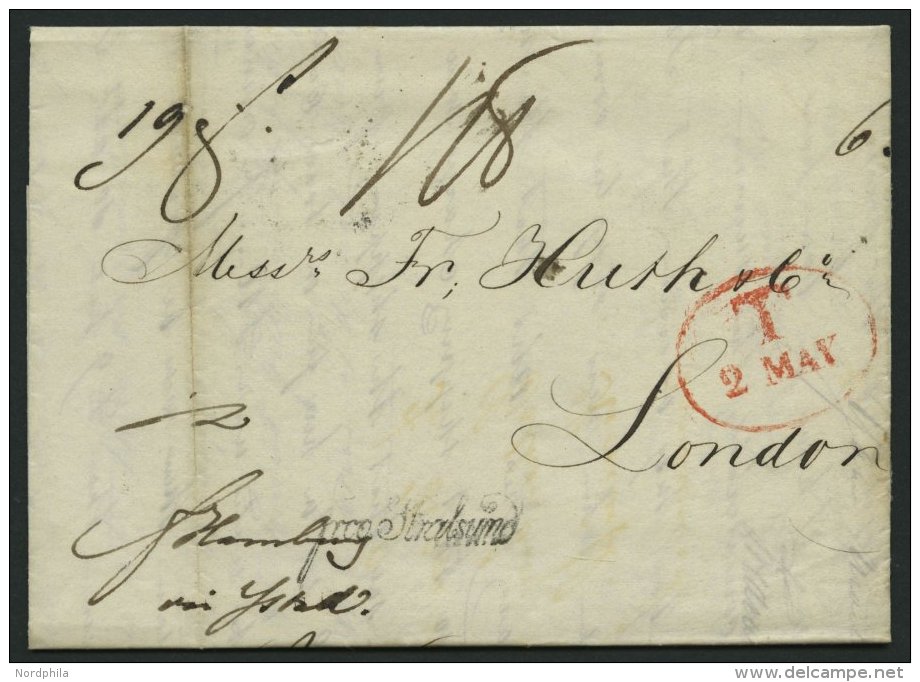 19
1/8
6.
Messrs Fr, Huth & Co
T
2 MAY
London
12
franco Stralsund
p Hamburg
via Ystad.
Nordphila
delcampe.net